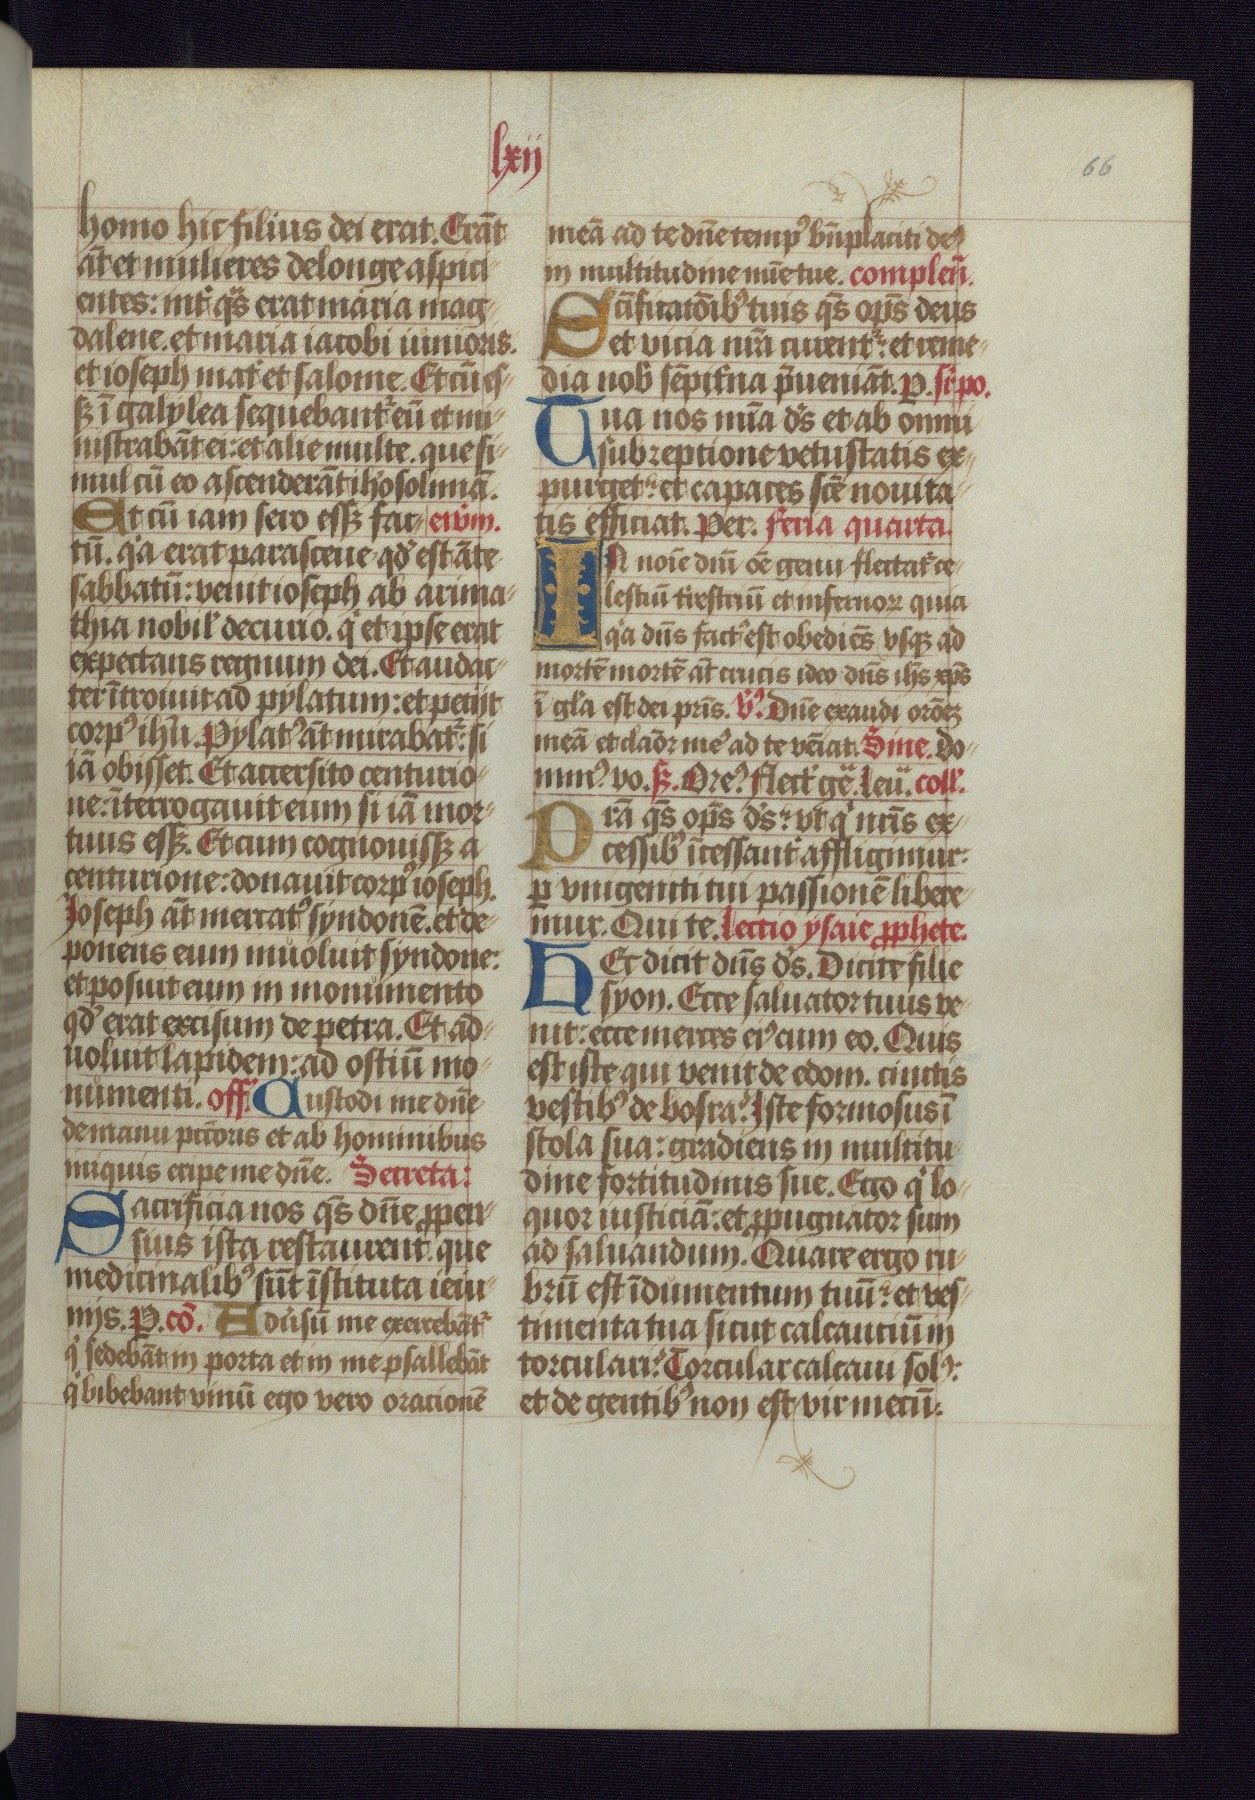 lxii
66
homo hic filius dei erat. Erāt
āt et mulieres de longe aspici
entes: int̄ q̄s erat maria mag
dalene. et maria iacobi iunioris.
et ioseph mat̄ et salome. Et cū es
sꝫ ī galylea sequebant̄ eū et mi
nistrabāt ei: et alie multe. que si
mul cū eo ascenderāt ih̓osolimā.
Et cū iam sero essꝫ fac ewm.
tū. q̓a erat parasceue qd̓ est āte
sabbatū: venit ioseph ab arima
thia nobil̓ decurio. q̓ et ipse erat
expectans regnum dei. Et audac
ter ītroiuit ad pylatum: et petiit
corpꝰ ih̄u. Pylatꝰ āt mirabat̄: si
iā obisset. Et accersito centurio
ne: īterrogauit eum si iā mor
tuus essꝫ. Et cum cognouissꝫ a
centurione: donauit corpꝰ ioseph.
Ioseph āt mercatꝰ syndonē. et de
ponens eum inuoluit syndone:
et posuit eum in monumento
qd̓ erat excisum de petra. Et ad
uoluit lapidem: ad ostiū mo
numenti. off. Custodi me dn̄e
de manu pct̄oris et ab hominibus
iniquis eripe me dn̄e. Secreta:
Sacrificia nos qs̄ dn̄e ꝓpen
sius ista restaurent. que
medicinalibꝰ sūt īstituta ieiu
nijs. P. cō. Aduʼsū me exercebāt̄
q̓ sedebāt in porta et in me psallebāt
q̓ bibebant vinū ego vero orationē
meā ad te dn̄e tempꝰ bn̄placiti deꝰ
in multitudine mīe tue. complen̄.
Sc̄ificatōibꝰ tuis qs̄ op̄s deus
et vicia nr̄a curent̄: et reme
dia nob̓ sēpit̄na p̄ueniāt. P. sr̄ po.
Tua nos mīa d̓s et ab omni
subreptione vetustatis ex
purget: et capaces sc̄e nouita
tis efficiat. Per. feria quarta.
IN noīe dnī oē genu flectat̄ ce
lestiū t̄restriū et infernoꝝ quia
q̓a dn̄s factꝰ est obediēs vsqꝫ ad
mortē mortē āt crucis ideo dn̄s ih̄s xp̄s
ī gl̓a est dei pr̄is. v̓ꝰ. Dn̄e exaudi orōeꝫ
meā et clāor meꝰ ad te vēiat. Sine. Do
minꝰ vo. sꝫ. Oreꝰ. flect̄ ge. leu. coll̓.
Prā qs̄ op̄s d̓s: vt q̓ nr̄is ex
cessibꝰ īcessant̄ affligimur:
ꝑ vnigeniti tui passionē libere
mur. Qui te. lectio ysaie ꝓphete.
Hec dicit dn̄s d̓s. Dicite filie
syon. Ecce saluator tuus ve
nit: ecce merces eiꝰ cum eo. Quis
est iste qui venit de edom. tinctis
vestibꝰ de bosra? Iste formosus ī
stola sua: gradiens in multitu
dine fortitudinis sue. Ego q̓ lo
quor iusticiā: et ꝓpugnator sum
ad saluandum. Quare ergo ru
brū est īdumentum tuū: et ves
timenta tua sicut calcantiū in
torculari? Torcular calcaui solꝰ:
et de gentibꝰ non est vir mecū: